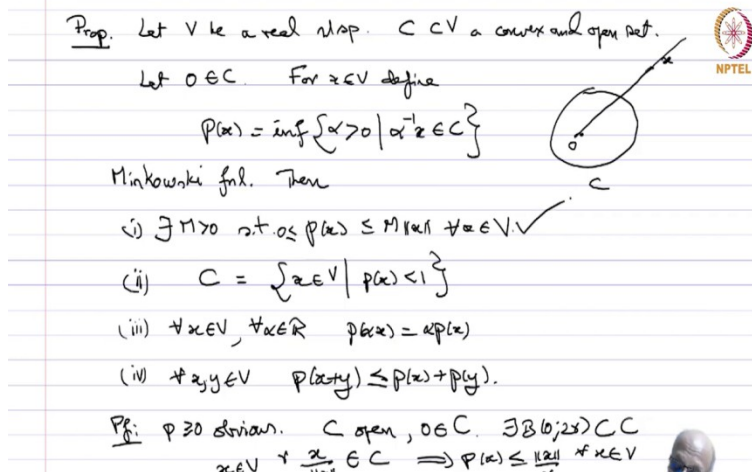 Prop. Let V be a real nlsp. C ⊂ V a convex and open set.
Let 0 ∈ C. For x ∈ V define
p(x) = inf {α > 0 | α⁻¹x ∈ C}
Minkowski fnl. Then
(i) ∃ M > 0 s.t. 0 ≤ p(x) ≤ M ||x|| ∀ x ∈ V. ✓
(ii) C = {x ∈ V | p(x) < 1}
(iii) ∀ x ∈ V, ∀ α ∈ ℝ p(αx) = αp(x)
(iv) ∀ x, y ∈ V p(x+y) ≤ p(x) + p(y).
Pf: p ≥ 0 obvious. C open, 0 ∈ C. ∃ B(0; 2r) ⊂ C
x ∈ V r x/||x|| ∈ C ⟹ p(x) ≤ ||x|| ∀ x ∈ V
x
0
C
NPTEL